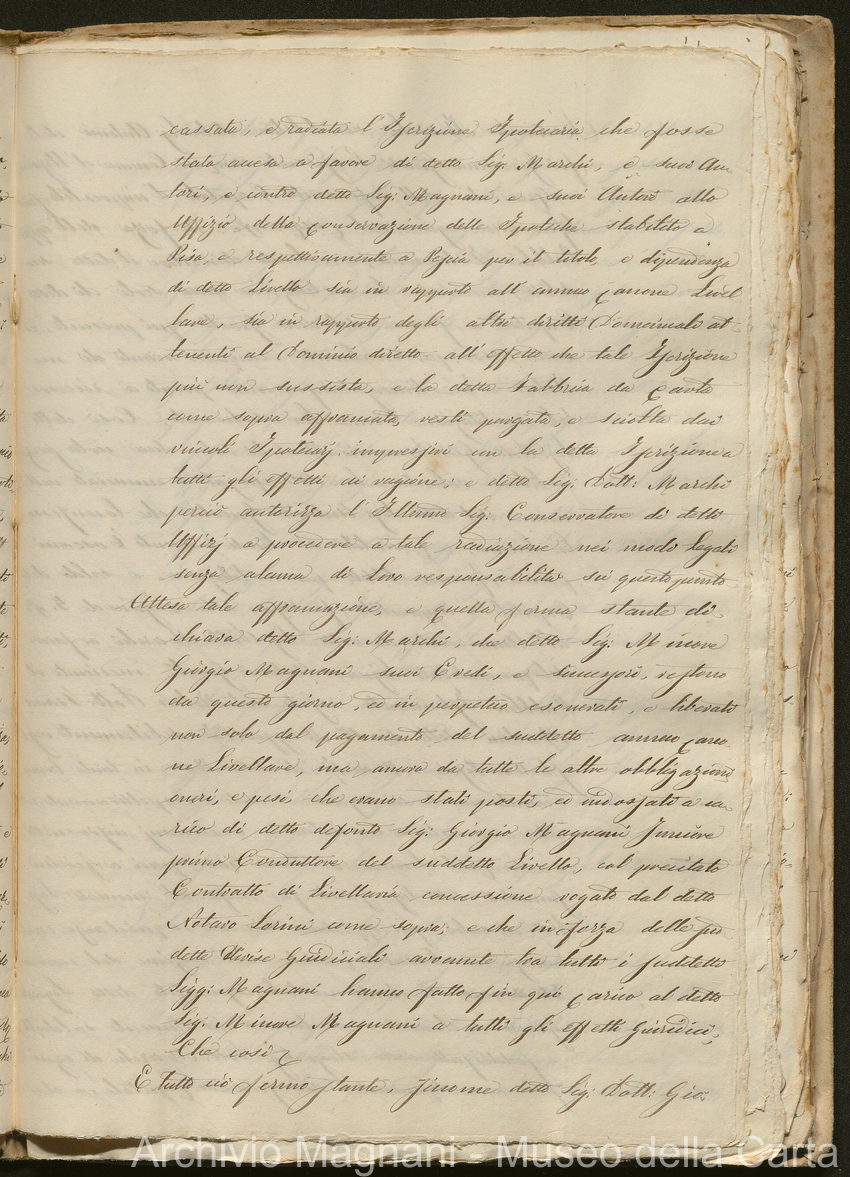 cassata, e radiata l'Iscrizione Ipotecaria che fosse
stata accesa a favore di detto Sig: Marchi, e suoi Au-
tori, e contro detto Sig: Magnani, e suoi Autori allo
Uffizio della conservazione delle Ipoteche stabilito a
Pisa, e respettivamente a Pescia per il titolo, e dipendenza
di detto Livello sia in rapporto all'annuo canone Livel
lare, sia in rapporto degli altri diritti Domenicali at-
tenenti al Dominio diretto all'effetto che tale Iscrizione
più non sussista, e la detta Fabbrica da Carta
come sopra affrancata, resti purgata, e sciolta dai
vincoli Ipotecarj impressivi con la detta Iscrizione a
tutti gli effetti di ragione; e detto Sig: Dott: Marchi
perciò autorizza l'Illmo Sig: Conservatore di detti
Uffizj a procedere a tale radiazione nei modi legali
senza alcuna di loro responsabilità su questo punto
Attesa tale affrancazione, e quella ferma stante di-
chiara detto Sig: Marchi, che detto Sig: Minore
Giorgio Magnani suoi Eredi, e Successori, restono
da questo giorno, ed in perpetuo esonerati, e liberati
non solo dal pagamento del suddetto annuo cano-
ne Livellare, ma ancora da tutte le altre obbligazioni
oneri, e pesi, che erano stati posti, ed indossati a ca-
rico di detto defonto Sig: Giorgio Magnani Juniore
primo Conduttore del suddetto Livello, col precitato
Contratto di Livellaria concessione rogato dal detto
Notaro Sorini come sopra; e che in forza delle pre
dette Divise Giudiciali avvenute tra tutti i suddetti
Sigg: Magnani hanno fatto fin qui carico al detto
Sig: Minore Magnani a tutti gli effetti Giuridici,
Che così
E tutto ciò fermo stante, siccome detto Sig: Dott: Gio:
Archivio Magnani - Museo della Carta